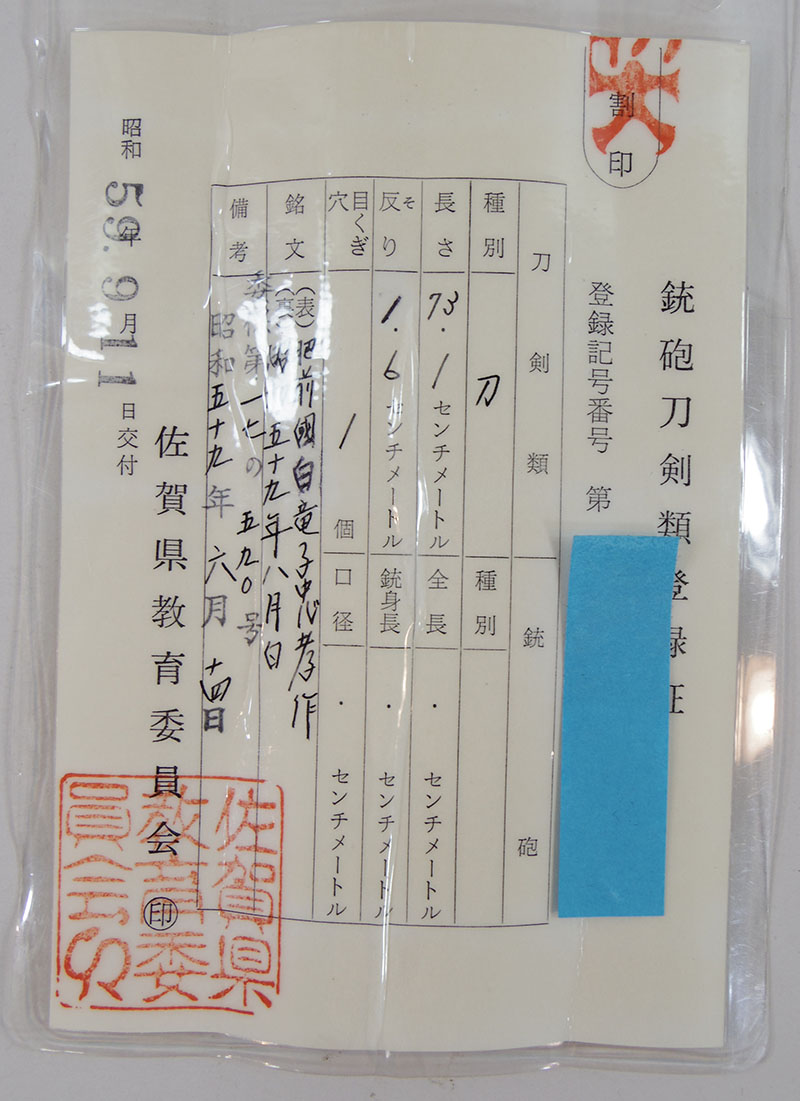 割印
銃砲刀剣類登録証
登録記号番号 第
刀剣類
銃砲
種別
刀
種別
長さ
73.1センチメートル
全長
.センチメートル
反り
そ
1.6センチメートル
銃身長
.センチメートル
目くぎ穴
1個
口径
.センチメートル
銘文
(表)肥前國白竜子忠孝作
(裏)昭和五十九年八月日
備考
委保第一七の五九〇号
昭和五十九年六月十四日
佐賀県教育委員会 印
昭和59年9月11日交付
佐賀県
教育委
員会